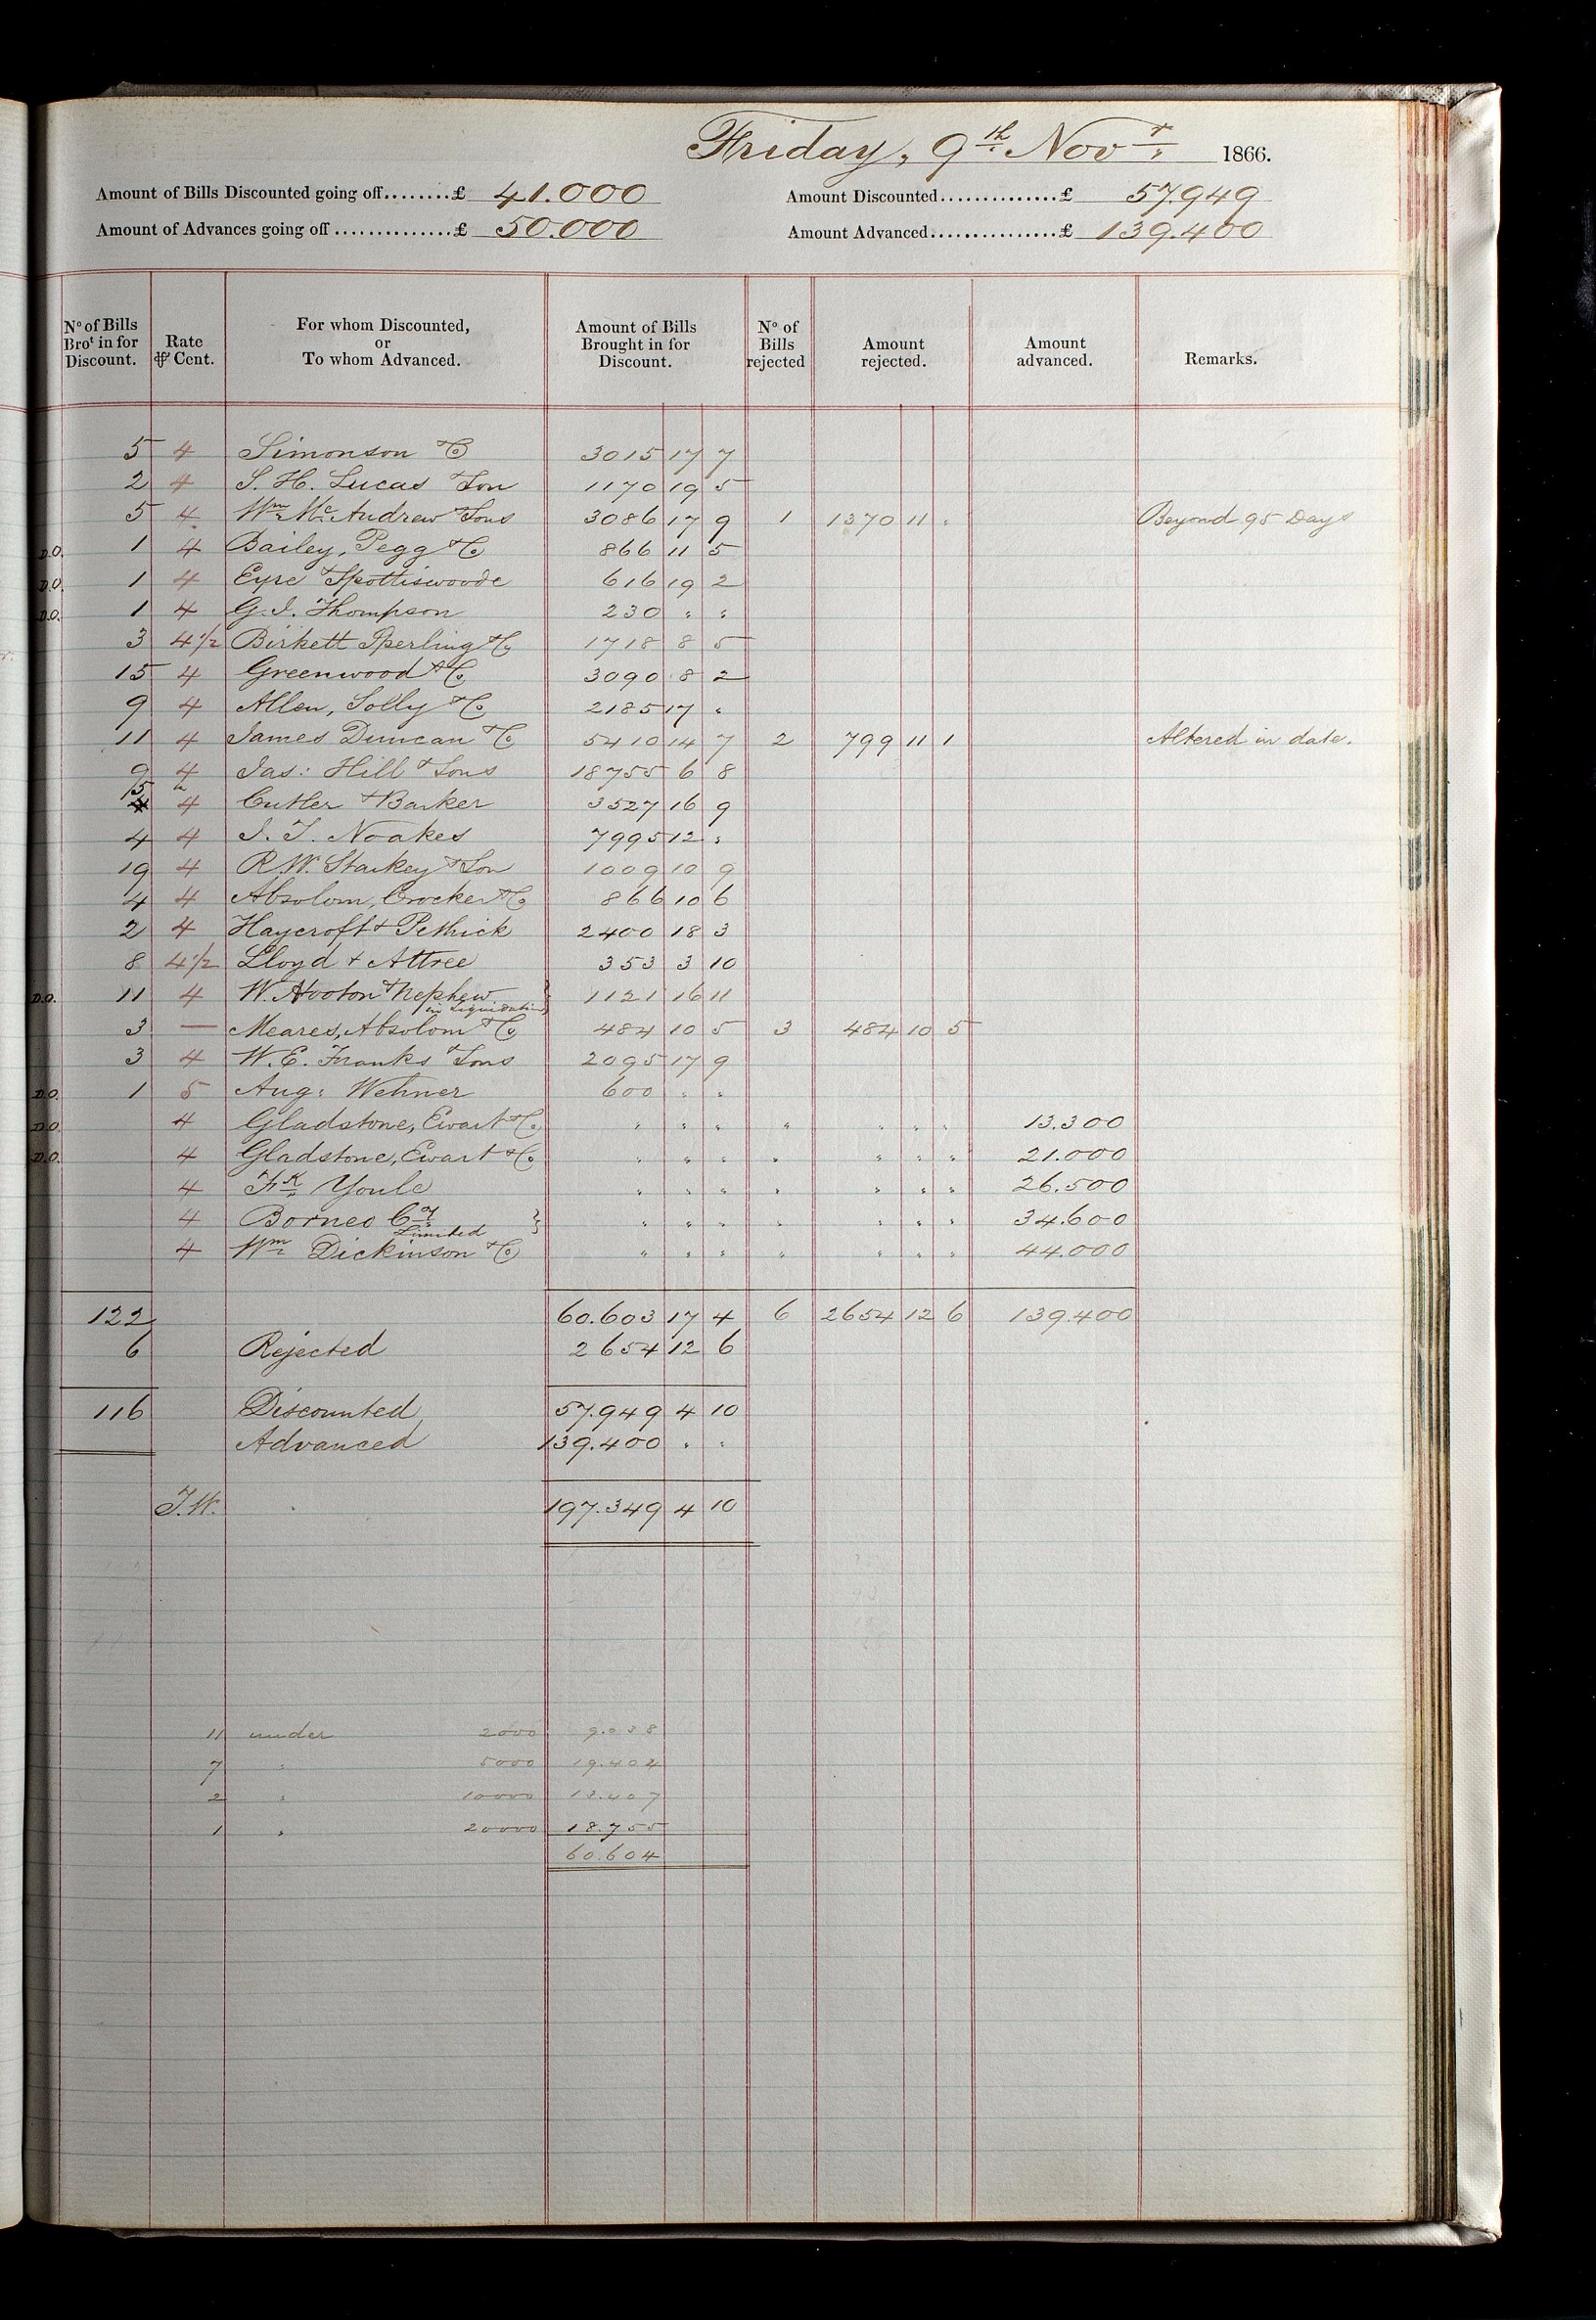 Friday, 9th Novr. 1866.
Amount of Bills Discounted going off........£ 41.000 Amount Discounted..............£ 57.949
Amount of Advances going off..............£ 50.000 Amount Advanced...............£ 139.400
No of Bills Brot in for Discount. Rate ⅌ Cent. For whom Discounted, or To whom Advanced. Amount of Bills Brought in for Discount. No of Bills rejected Amount rejected. Amount advanced. Remarks.
5 4 Simonson & Co 3015 17 7
2 4 S. H. Lucas & Son 1170 19 5
5 4 Wm. Mc.Andrew & Sons 3086 17 9 1 1370 11 " Beyond 95 Days
D.O. 1 4 Bailey, Pegg & Co 866 11 5
D.O. 1 4 Eyre & Spottiswoode 616 19 2
D.O. 1 4 G. I. Thompson 230 " "
3 4 1/2 Birkett Sperling & Co 1718 8 5
15 4 Greenwood & Co 3090 8 2
9 4 Allen, Solly & Co 2185 17 "
11 4 James Duncan & Co 5410 14 7 2 799 11 1 Altered in date.
9 4 Jas: Hill & Sons 18755 6 8
5 4 Cutler & Barker 3527 16 9
4 4 I. T. Noakes 7995 12 "
19 4 R. W. Starkey & Son 1009 10 9
4 4 Absolom, Crocker & Co 866 10 6
2 4 Haycroft & Pethick 2400 18 3
8 4 1/2 Lloyd & Attree 353 3 10
D.O. 11 4 W. Hooton & Nephew } 1121 16 11
in Liquidation
3 — Meares, Absolom & Co 484 10 5 3 484 10 5
3 4 W. E. Franks & Sons 2095 17 9
D.O. 1 5 Aug: Wehner 600 " "
D.O. 4 Gladstone, Ewart & Co " " " " " " " 13.300
D.O. 4 Gladstone, Ewart & Co " " " " " " " 21.000
4 Fk. Youle " " " " " " " 26.500
4 Borneo Cy. } " " " " " " " 34.600
Limited
4 Wm Dickinson & Co " " " " " " " 44.000
122 60.603 17 4 6 2654 12 6 139.400
6 Rejected 2654 12 6
116 Discounted 57.949 4 10
Advanced 139.400 " "
J.W. 197.349 4 10
11 under 2000 9.038
7 " 5000 19.404
2 " 10000 13.407
1 " 20000 18.755
60.604